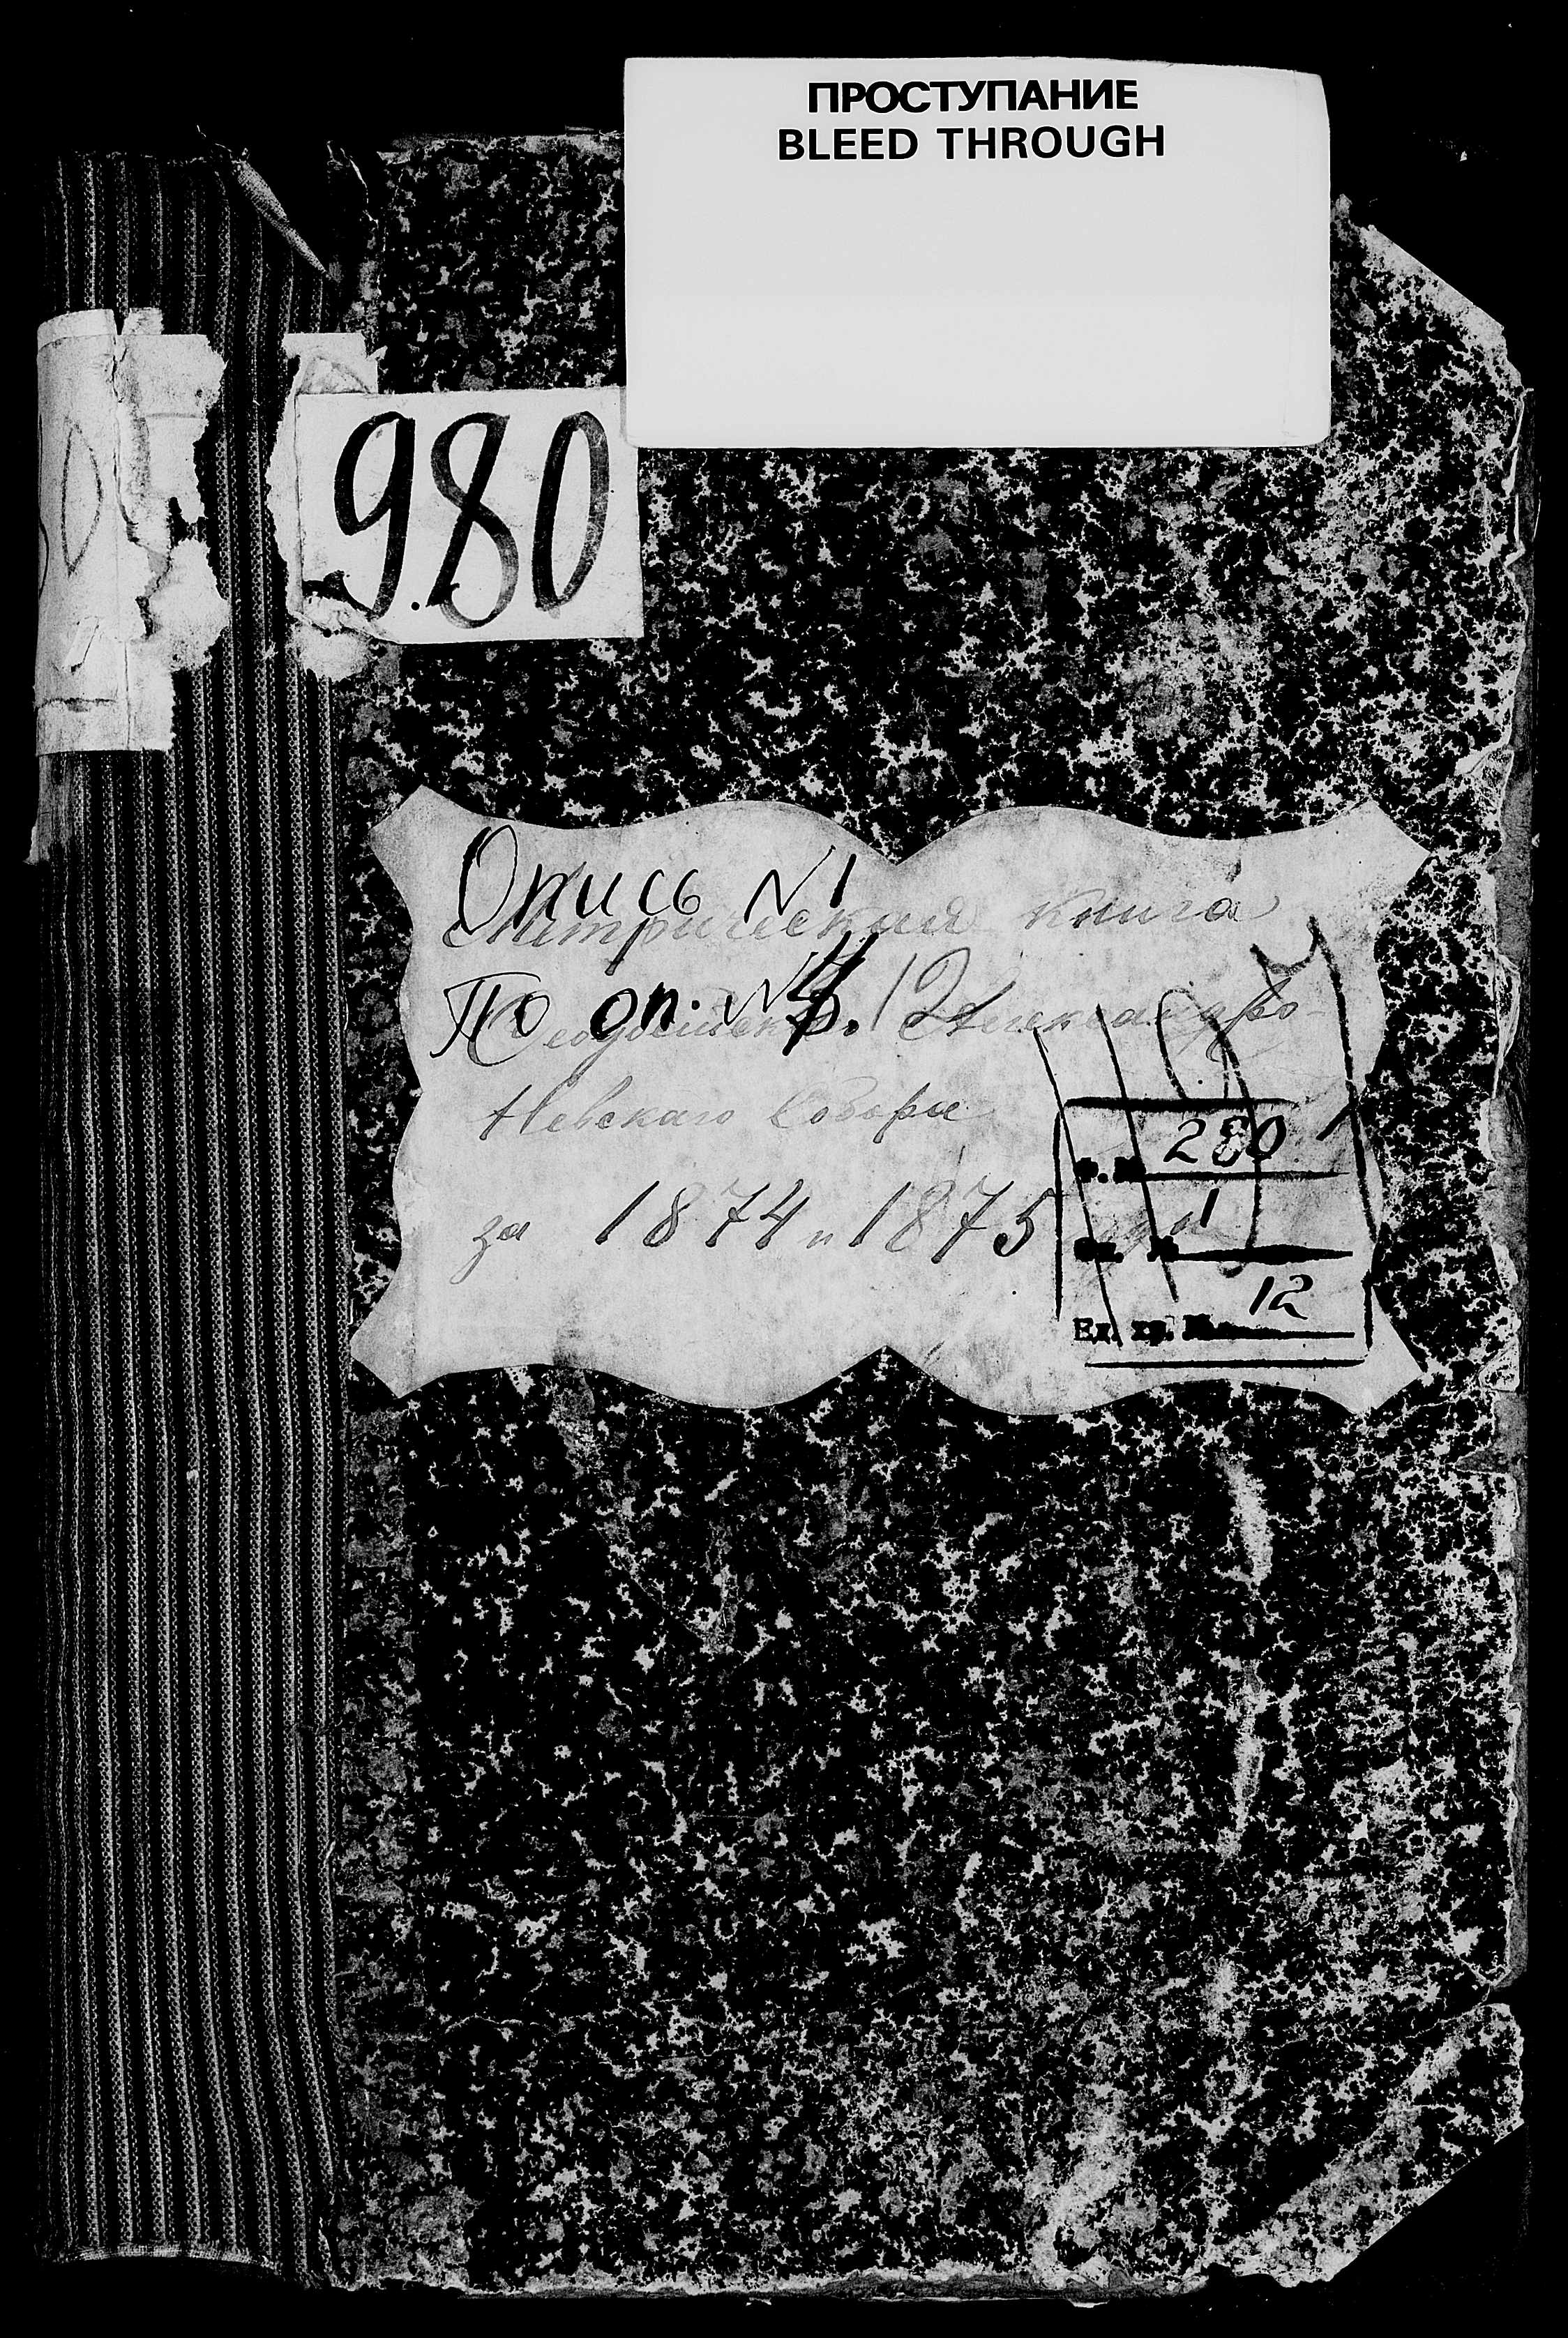 ПРОСТУПАНИЕ
BLEED THROUGH
980
Опись №1
Метрическая книга
По оп. № 12
Феодосійскаго Александро-
Невскаго Собора
за 1874 и 1875
280
1
Ед. хр. № 12